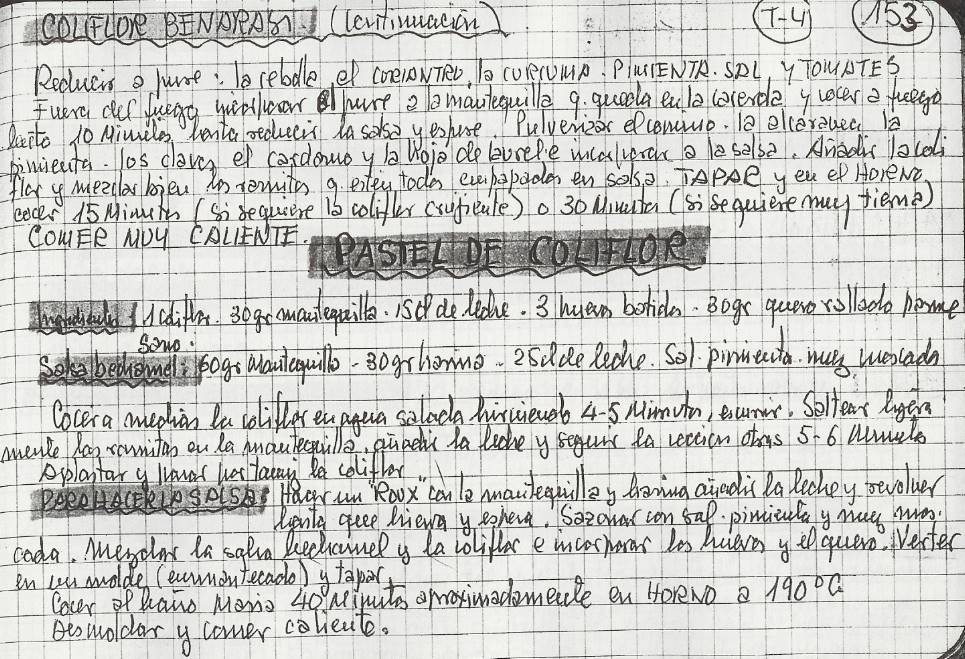 COLIFLOR BENARASI. (Continuación) T-4 153
Reducir a pure: la cebolla, el CORIANTRO, la CURCUMA. PIMIENTA. SAL, Y TOMATES
Fuera del fuego incorporar el pure a la mantequilla q. queda en la cacerola y cocer a fuego
lento 10 Minutos hasta reducir la salsa y espese. Pulverizar el comino. la alcaravea la
pimienta. los clavos el cardomo y la Hoja de laurel e incorporar a la salsa. Añadir la coli
flor y mezclar bien los ramitos q. esten todos empapados en salsa. TAPAR y en el HORNO
cocer 15 Minutos (si se quiere la coliflor crujiente) o 30 Minutos (si se quiere muy tierna)
COMER MUY CALIENTE.
PASTEL DE COLIFLOR
Ingredientes: 1 Coliflor. 30gr mantequilla. 15cl de leche. 3 huevos batidos. 30gr queso rallado parme
sano.
Salsa bechamel: 60gr Mantequilla - 30gr harina - 25cl de leche. Sal. pimienta. nuez moscada
Cocer a medias la coliflor en agua salada hirviendo 4-5 Minutos, escurrir. Saltear ligera
mente los ramitos en la mantequilla, añadir la leche y seguir la coccion otros 5-6 Minutos
Aplastar y la coliflor
PARA HACER LA SALSA: Hacer un "ROUX" con la mantequilla y harina añadir la leche y revolver
hasta que hierva y espese. Sazonar con sal. pimienta y nuez mos.
cada. Mezclar la salsa bechamel y la coliflor e incorporar los huevos y el queso. Verter
en un molde (enmantecado) y tapar.
Cocer al baño Maria 40 Minutos aproximadamente en HORNO a 190°C
Desmoldar y comer caliente.